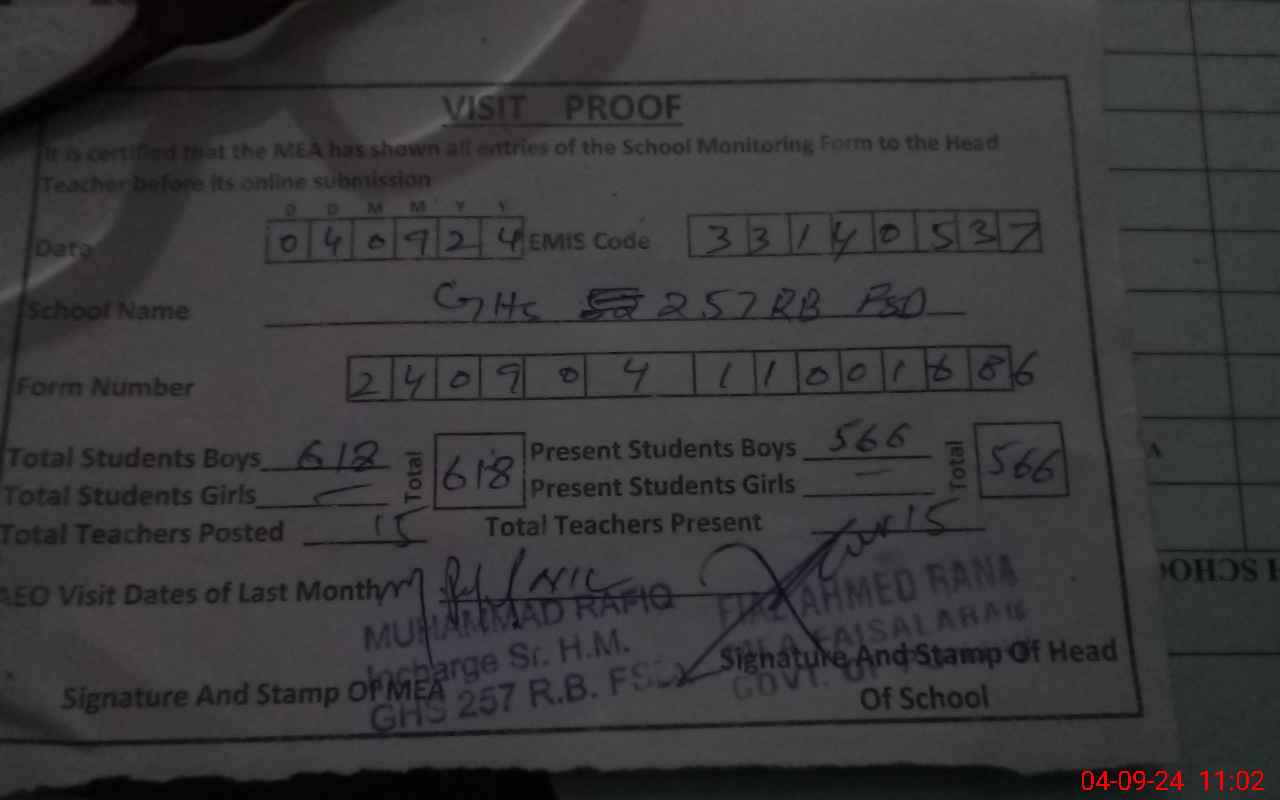 VISIT PROOF
It is certified that the MEA has shown all entries of the School Monitoring Form to the Head
Teacher before its online submission
D D M M Y Y
Date 0 4 0 9 2 4 EMIS Code 3 3 1 4 0 5 3 7
School Name GHS 257 RB FSD
Form Number 2 4 0 9 0 4 1 1 0 0 1 6 8 6
Total Students Boys 618 Total 618 Present Students Boys 566 Total 566
Total Students Girls — Present Students Girls —
Total Teachers Posted 15 Total Teachers Present 15
AEO Visit Dates of Last Month NIL
MUHAMMAD RAFIQ AHMED RANA
Incharge Sr. H.M. MEA FAISALABAD
Signature And Stamp Of MEA Signature And Stamp Of Head
GHS 257 R.B. FSD GOVT. OF
Of School
I SCHOO
04-09-24 11:02